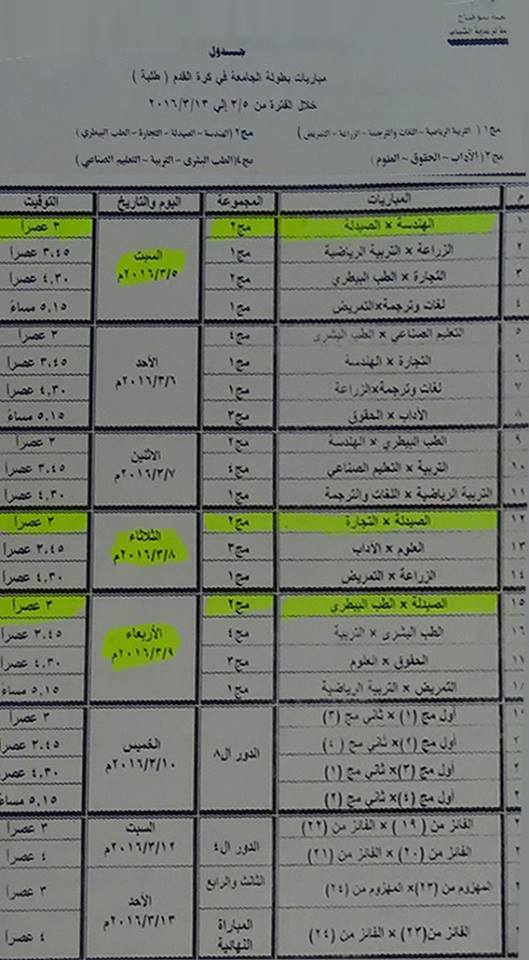 جدول
مباريات بطولة الجامعة في كرة القدم ( طلبة )
خلال الفترة من ٣/٥ إلي ٢٠١٦/٣/١٣
مج١ ( التربية الرياضية – اللغات والترجمة – الزراعة – التمريض ) مج٢ (الهندسة – الصيدلة – التجارة – الطب البيطري )
مج٣ (الآداب – الحقوق – العلوم ) مج٤(الطب البشرى – التربية – التعليم الصناعي )
م المباريات المجموعة اليوم والتاريخ التوقيت
١ الهندسة × الصيدلة مج٢ السبت ٢٠١٦/٣/٥م ٣ عصراً
٢ الزراعة × التربية الرياضية مج١ ٣,٤٥ عصراً
٣ التجارة × الطب البيطري مج٢ ٤,٣٠ عصراً
٤ لغات وترجمة×التمريض مج١ ٥,١٥ مساءً
٥ التعليم الصناعي × الطب البشرى مج٤ الأحد ٢٠١٦/٣/٦م ٣ عصراً
٦ التجارة × الهندسة مج١ ٣,٤٥ عصراً
٧ لغات وترجمة×الزراعة مج١ ٤,٣٠ عصراً
٨ الأداب × الحقوق مج٣ ٥,١٥ مساءً
٩ الطب البيطري × الهندسة مج٢ الاثنين ٢٠١٦/٣/٧م ٣ عصراً
١٠ التربية × التعليم الصناعي مج٤ ٣,٤٥ عصراً
١١ التربية الرياضية × اللغات والترجمة مج١ ٤,٣٠ عصراً
١٢ الصيدلة × التجارة مج٢ الثلاثاء ٢٠١٦/٣/٨م ٣ عصراً
١٣ العلوم × الاداب مج٣ ٣,٤٥ عصراً
١٤ الزراعة × التمريض مج١ ٤,٣٠ عصراً
١٥ الصيدلة × الطب البيطري مج٢ الأربعاء ٢٠١٦/٣/٩م ٣ عصراً
١٦ الطب البشرى × التربية مج٤ ٣,٤٥ عصراً
الحقوق × العلوم مج٣ ٤,٣٠ عصراً
التمريض × التربية الرياضية مج١ ٥,١٥ مساءً
أول مج (١)× ثاني مج (٣) الدور ال٨ الخميس ٢٠١٦/٣/١٠م ٣ عصراً
أول مج (٢)× ثاني مج ( ٤) ٣,٤٥ عصراً
أول مج (٣)× ثاني مج (١) ٤,٣٠ عصراً
أول مج (٤)× ثاني مج (٢) ٥,١٥ مساءً
الفائز من ( ١٩ ) × الفائز من (٢٢) الدور ال٤ السبت ٢٠١٦/٣/١٢م ٣ عصراً
الفائز من (٢٠) × الفائز من (٢١) ٤ عصراً
المهزوم من (٢٣)× المهزوم من (٢٤) الثالث والرابع الأحد ٢٠١٦/٣/١٣م ٣ عصراً
الفائز من(٢٣) × الفائز من (٢٤) المباراة النهائية ٤ عصراً